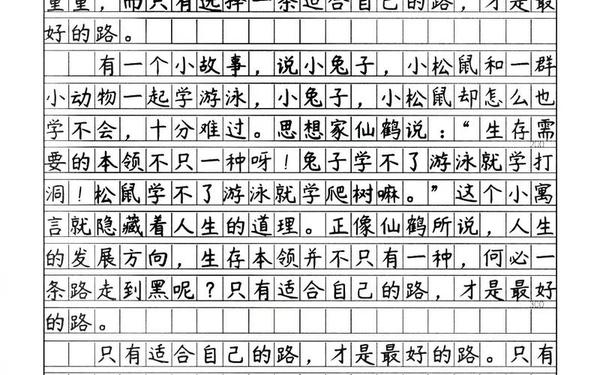 重重，而只有选择一条适合自己的路，才是最
好的路。
有一个小故事，说小兔子，小松鼠和一群
小动物一起学游泳，小兔子，小松鼠却怎么也
学不会，十分难过。思想家仙鹤说：“生存需
200
要的本领不只一种呀！兔子学不了游泳就学打
洞！松鼠学不了游泳就学爬树嘛。”这个小寓
言就隐藏着人生的道理。正像仙鹤所说，人生
的发展方向，生存本领并不只有一种，何必一
条路走到黑呢？只有适合自己的路，才是最好
300
的路。
只有适合自己的路，才是最好的路。只有